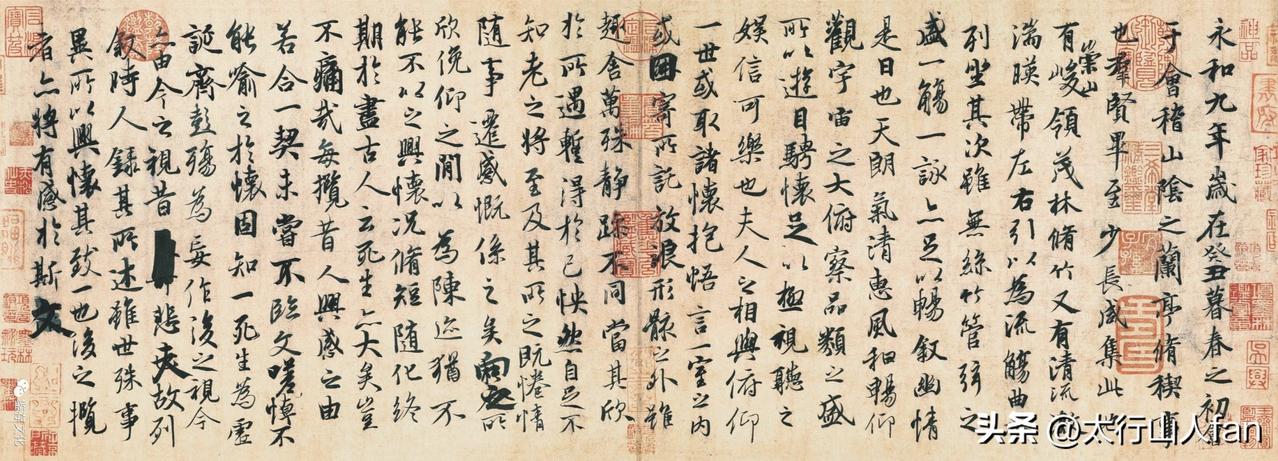 永和九年歲在癸丑暮春之初會
于會稽山陰之蘭亭脩稧事
也群賢畢至少長咸集此地
有崇山峻領茂林脩竹又有清流
湍暎帶左右引以為流觴曲
列坐其次雖無絲竹管弦之
盛一觴一詠亦足以暢叙幽情
是日也天朗氣清惠風和暢仰
觀宇宙之大俯察品類之盛
所以遊目騁懷足以極視聽之
娛信可樂也夫人之相與俯仰
一世或取諸懷抱悟言一室之內
或因寄所託放浪形骸之外雖
趣舍萬殊靜躁不同當其欣
於所遇暫得於己怏然自足不
知老之將至及其所之既惓情
隨事遷感慨係之矣向之所
欣俛仰之閒以為陳迹猶不
能不以之興懷況脩短隨化終
期於盡古人云死生亦大矣豈
不痛哉每攬昔人興感之由
若合一契未嘗不臨文嗟悼不
能喻之於懷固知一死生為虛
誕齊彭殤為妄作後之視今
亦由今之視昔悲夫故列
叙時人錄其所述雖世殊事
異所以興懷其致一也後之攬
者亦將有感於斯文
头条 @太行山人fan